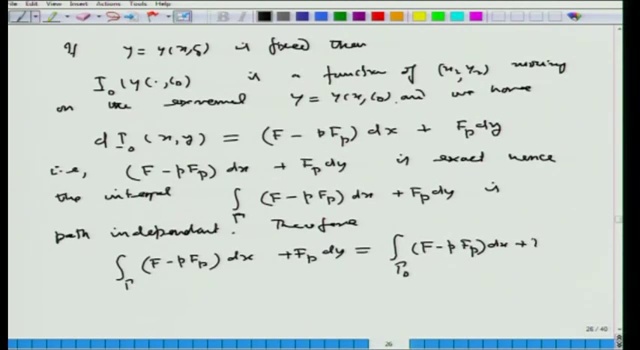 File Edit View Insert Actions Tools Help
If y = y(x,ξ) is fixed then
I₀(y(·,ξ₀)) is a function of (x₂, y₂) moving
on the extremal y = y(x,ξ₀) and we have
dI₀(x,y) = (F - pF_p) dx + F_p dy
i.e., (F - pF_p) dx + F_p dy is exact hence
the integral ∫_Γ (F - pF_p) dx + F_p dy is
path independant. Therefore
∫_Γ (F - pF_p) dx + F_p dy = ∫_Γ₀ (F - pF_p) dx +
26 / 40
26